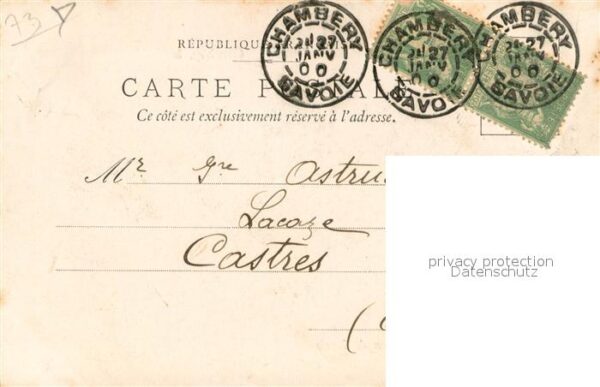 73
RÉPUBLIQUE FRANÇAISE
CHAMBERY 27 JANV 00 SAVOIE
CHAMBERY 27 JANV 00 SAVOIE
CHAMBERY 27 JANV 00 SAVOIE
CARTE POSTALE
Ce côté est exclusivement réservé à l'adresse.
Mr Gre Astru
Lacaze
Castres
(
privacy protection
Datenschutz